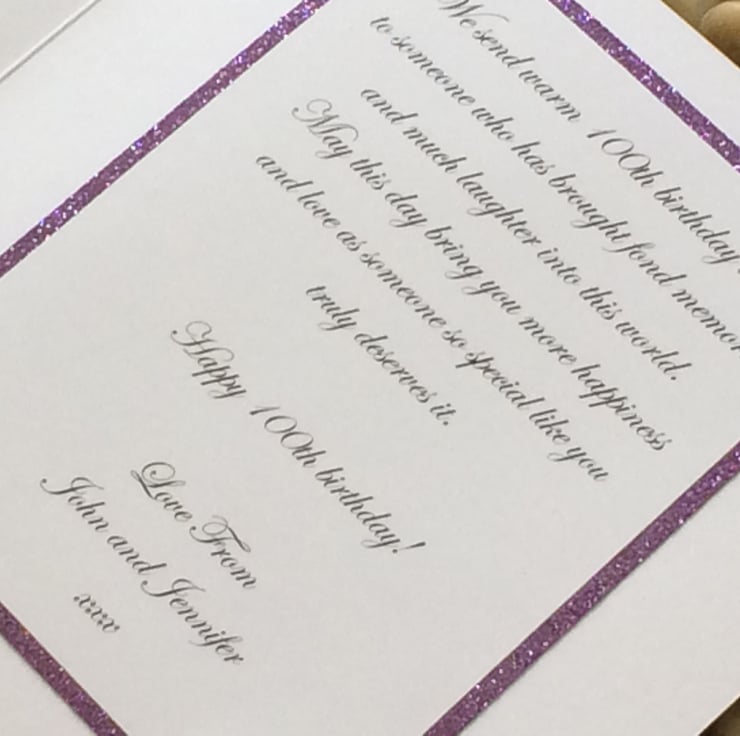 We send warm 100th birthday
to someone who has brought fond
and much laughter into this world.
May this day bring you more happiness
and love as someone so special like you
truly deserves it.
Happy 100th birthday!
Love From
John and Jennifer
xxx